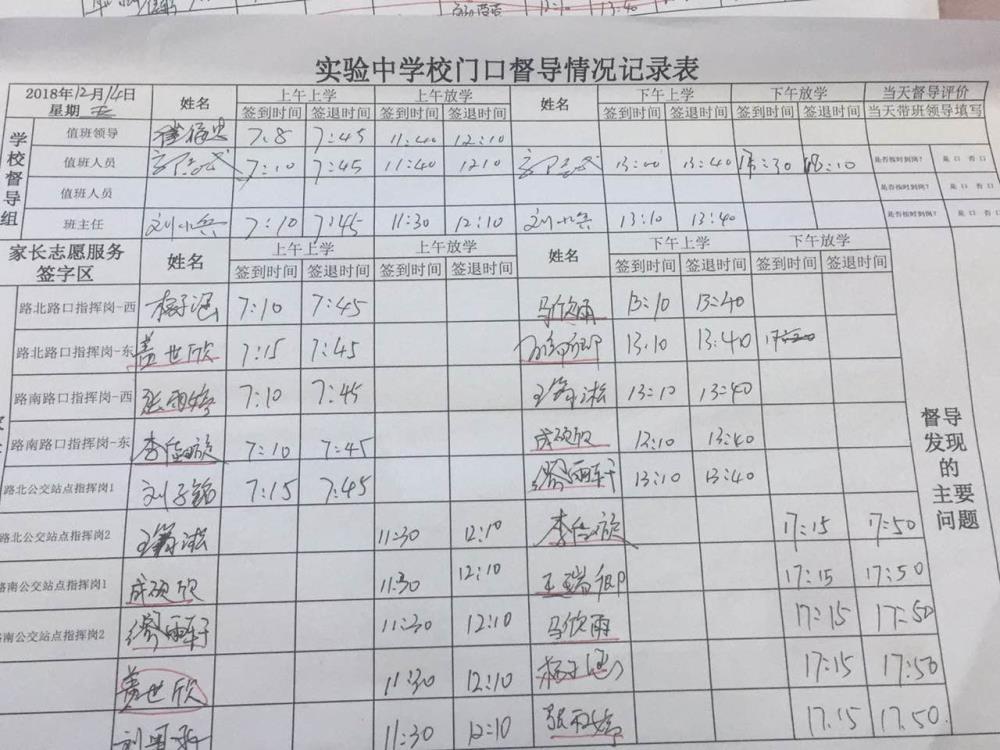 13:40
实验中学校门口督导情况记录表
2018年12月14日 姓名 上午上学 上午放学 姓名 下午上学 下午放学 当天督导评价
星期 五 签到时间 签退时间 签到时间 签退时间 签到时间 签退时间 签到时间 签退时间 当天带班领导填写
学校督导组
值班领导 7:8 7:45 11:40 12:10
值班人员 7:10 7:45 11:40 1210 13:00 13:40 17:30 18:10 是否按时到岗? 是 口 否 口
值班人员 是否按时到岗? 是 口 否 口
班主任 刘小兵 7:10 7:45 11:30 12:10 刘小兵 13:10 13:40 是否按时到岗? 是 口 否
家长志愿服务 姓名 上午上学 上午放学 姓名 下午上学 下午放学
签字区 签到时间 签退时间 签到时间 签退时间 签到时间 签退时间 签到时间 签退时间
路北路口指挥岗-西 杨子涵 7:10 7:45 马欣雨 13:10 13:40
路北路口指挥岗-东 盖世欣 7:15 7:45 13:10 13:40
路南路口指挥岗-西 张雨婷 7:10 7:45 13:10 13:40
路南路口指挥岗-东 李佳璇 7:10 7:45 成硕欣 13:10 13:40
路北公交站点指挥岗1 刘子铭 7:15 7:45 雨轩 13:10 13:40
路北公交站点指挥岗2 11:30 12:10 李佳璇 17:15 17:50
路南公交站点指挥岗1 成硕欣 11:30 12:10 王瑞卿 17:15 17:50
路南公交站点指挥岗2 雨轩 11:30 12:10 马欣雨 17:15 17:50
盖世欣 11:30 12:10 杨子涵 17:15 17:50
11:30 12:10 张雨婷 17.15 17.50
督导
发现
的
主要
问题